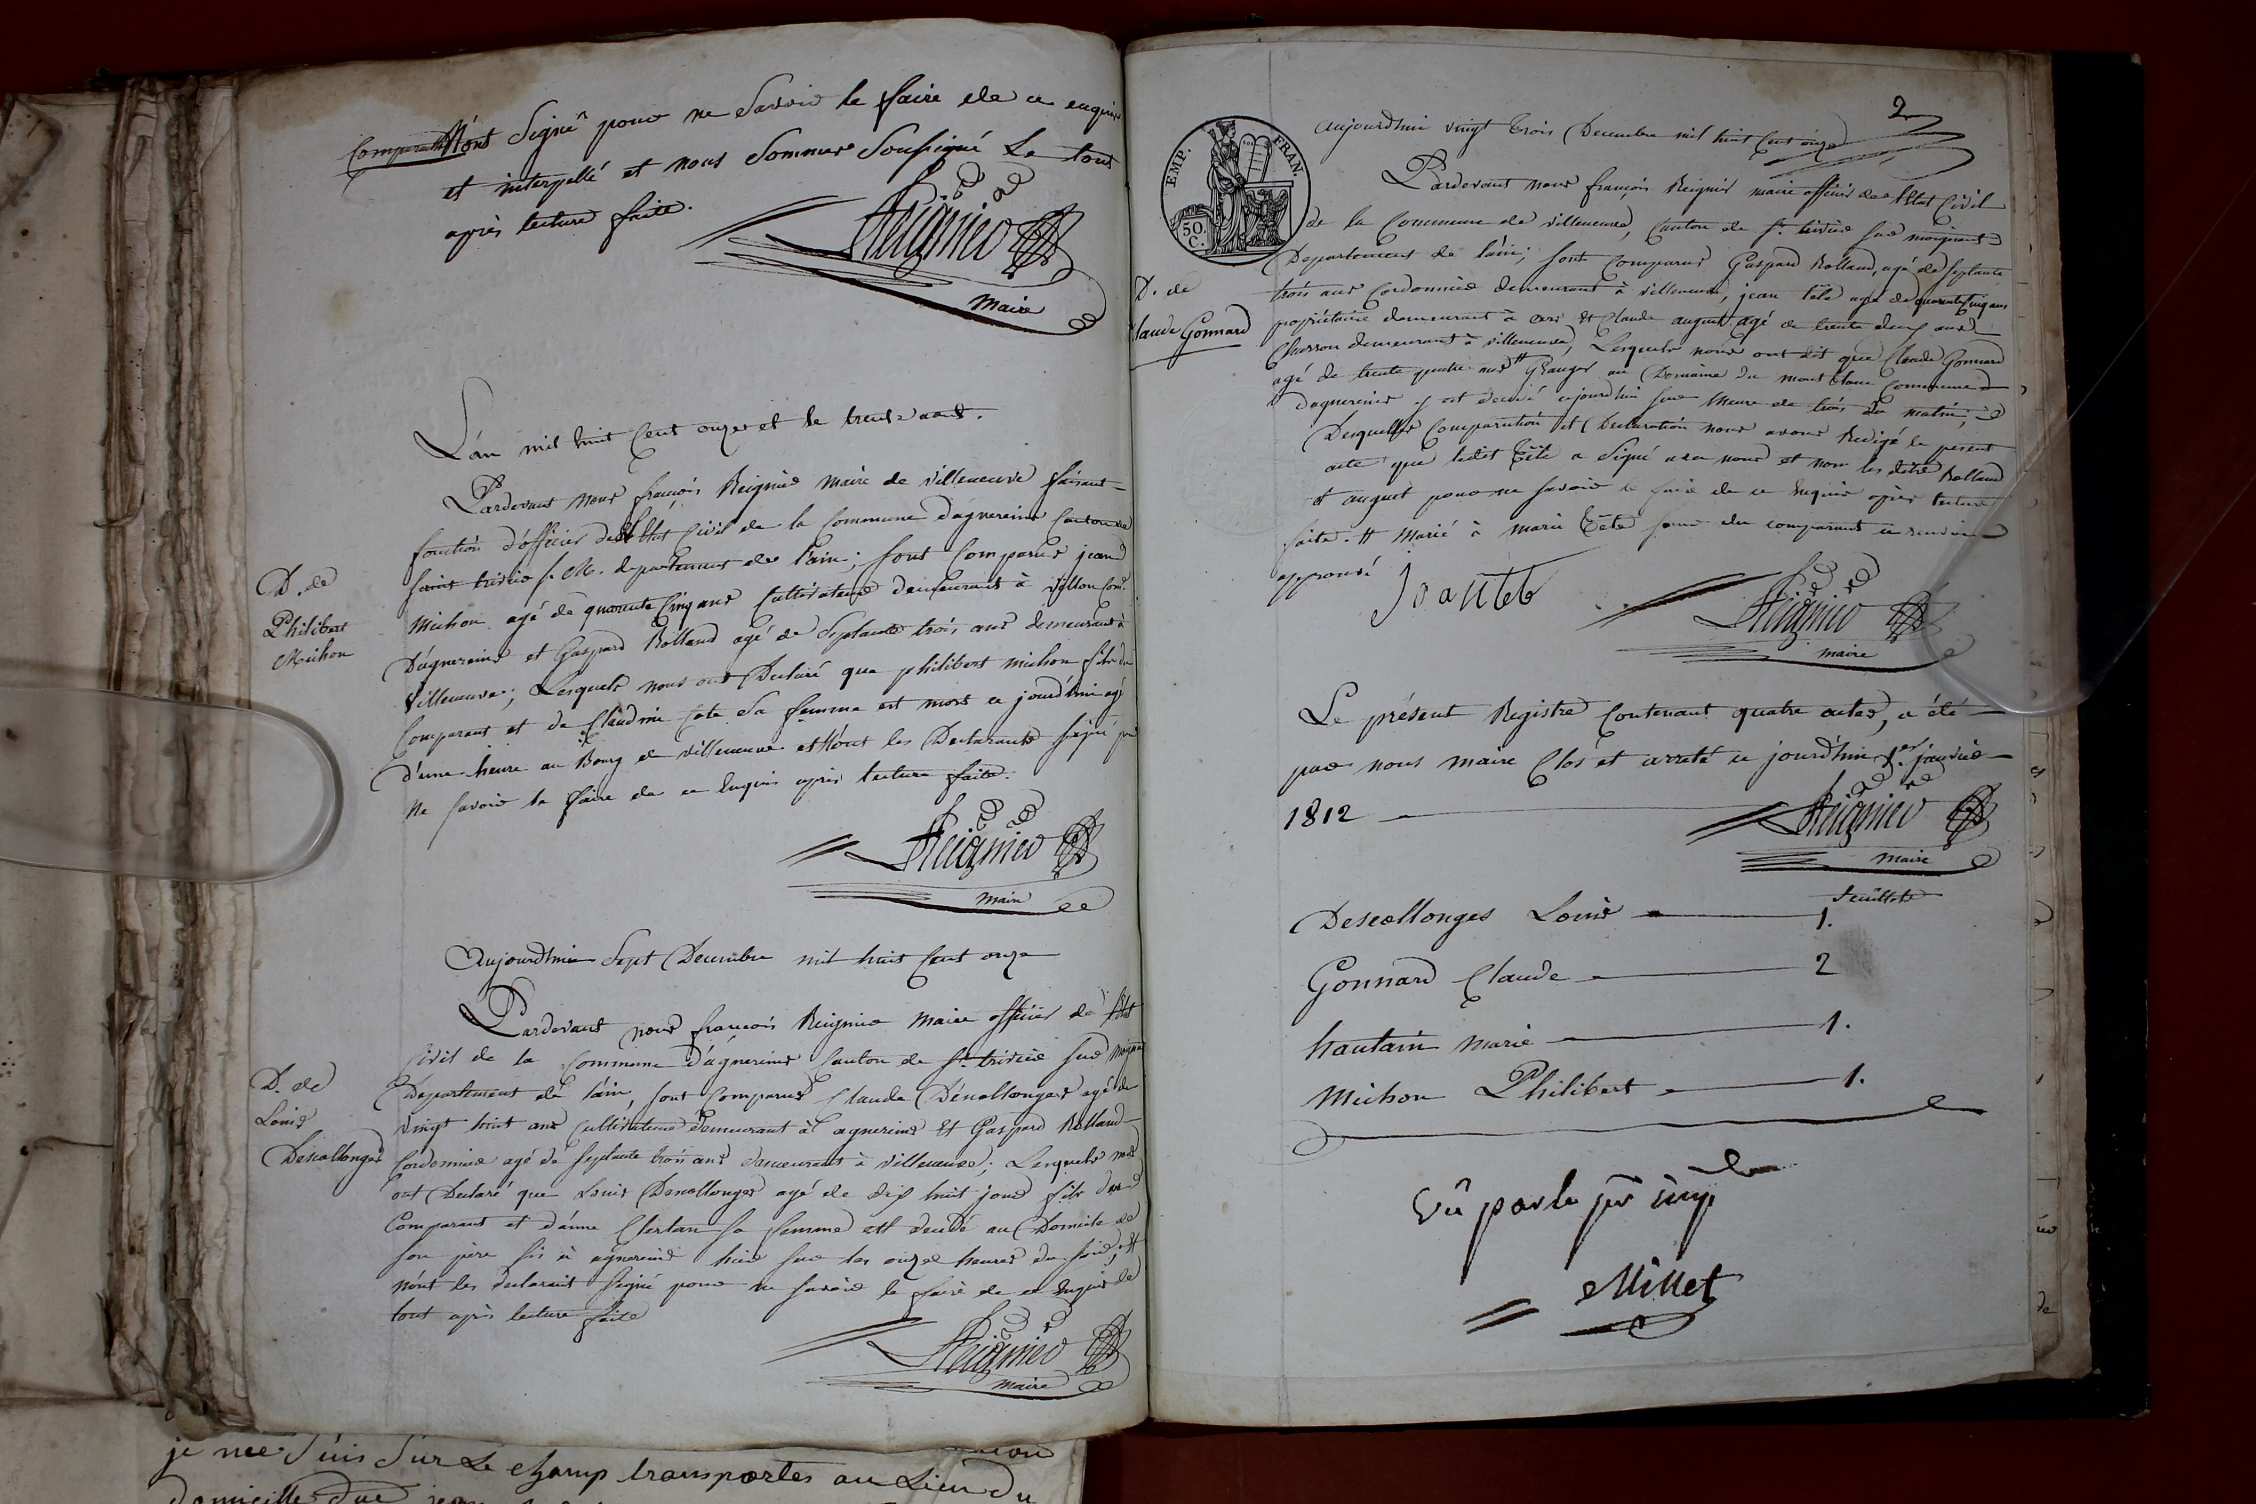 Comparants N'ont Signé pour ne Savoir le faire de ce enquis
et interpellé et nous Sommes Soussigné Le tout
après lecture faite.
Reignier
Maire
L'an mil huit Cent onze et le trente aout.
D. de
Philibert
Michon
Pardevant Nous françois Reignier Maire de villeneuve faisant
fonction d'officier de l'Etat Civil de la Commune d'agnereins Canton de
Saint trivier s. M. departement de l'ain; sont Comparus jean
Michon agé de quarante Cinq ans Cultivateur demeurant à
D'agnereins et Gaspard Rolland agé de Septante trois ans demeurant à
Villeneuve; Lesquels nous ont Declaré que philibert michon fils du
Comparant et de Claudine sa femme est mort ce jourd'hui agé
d'une heure au Bourg de villeneuve et N'ont les Declarants signé pr
Ne savoir le faire de ce Enquis après lecture faite.
Reignier
Maire
Aujourdhui Sept Decembre mil huit Cent onze
D. de
Louis
Descollonges
Pardevant nous françois Reignier Maire officier de l'Etat
Civil de la Commune d'agnereins Canton de St. trivier sur moignans
Departement de l'ain, sont Comparus Claude Descollonges agé de
vingt huit ans Cultivateur demeurant à agnereins Et Gaspard Rolland
Cordonnier agé de septante trois ans demeurant à villeneuve; Lesquels nous
ont Declaré que Louis Descollonges agé de dix huit jours fils du
Comparant et d'anne sa femme est decedé au Domicile de
son père sis à agnereins hier sur les onze heures du soir; et
n'ont les declarants signé pour ne savoir le faire de ce enquis le
tout après lecture faite
Reignier
maire
2
EMP. FRAN.
50.
C.
Aujourdhui vingt trois Decembre mil huit Cent onze
Pardevant nous françois Reignier maire officier de l'Etat Civil
de la Commune de villeneuve, Canton de St. trivier sur moignans
Departement de l'ain; sont Comparus Gaspard Rolland, agé de septante
D. de
Claude Gonnard
trois ans Cordonnier demeurant à villeneuve, jean tête agé de quarante Cinq ans
propriétaire demeurant à ars Et Claude auguet agé de trente deux ans
Charron demeurant à villeneuve, Lesquels nous ont dit que Claude Gonnard
agé de trente quatre ans # Granger au Domaine du mont Commune
d'agnereins y est decedé aujourdhui sur l'heure de trois du matin;
Desquelles Comparution et Declaration nous avons Redigé le present
acte que ledit Tête a Signé avec nous et non les dits Rolland
et auguet pour ne savoir le faire de ce Enquis après lecture
faite. # Marié à marie Tête soeur du comparant
approuvé
Jean tete
Reignier
maire
Le présent Registre Contenant quatre actes, a été
par nous maire Clos et arreté ce jourd'hui 1er. janvier
1812
Reignier
Maire
feuillets
Descollonges Louis 1.
Gonnard Claude 2
hautain Marie 1.
Michon Philibert 1.
Vû par le pr imp
Millet
je me suis sur le champ transportés au Lieu du